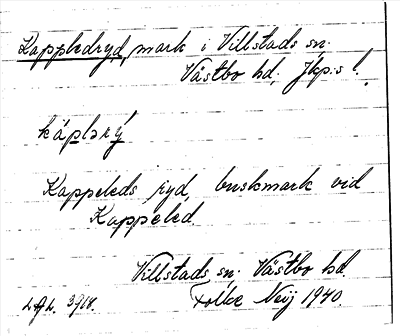 Kappledryd, mark i Villstads sn.
Västbo hd, Jkp:s l.
káplərý
Kappeleds ryd, buskmark vid
Kappeled.
Villstads sn. Västbo hd.
Folke Neij 1940.